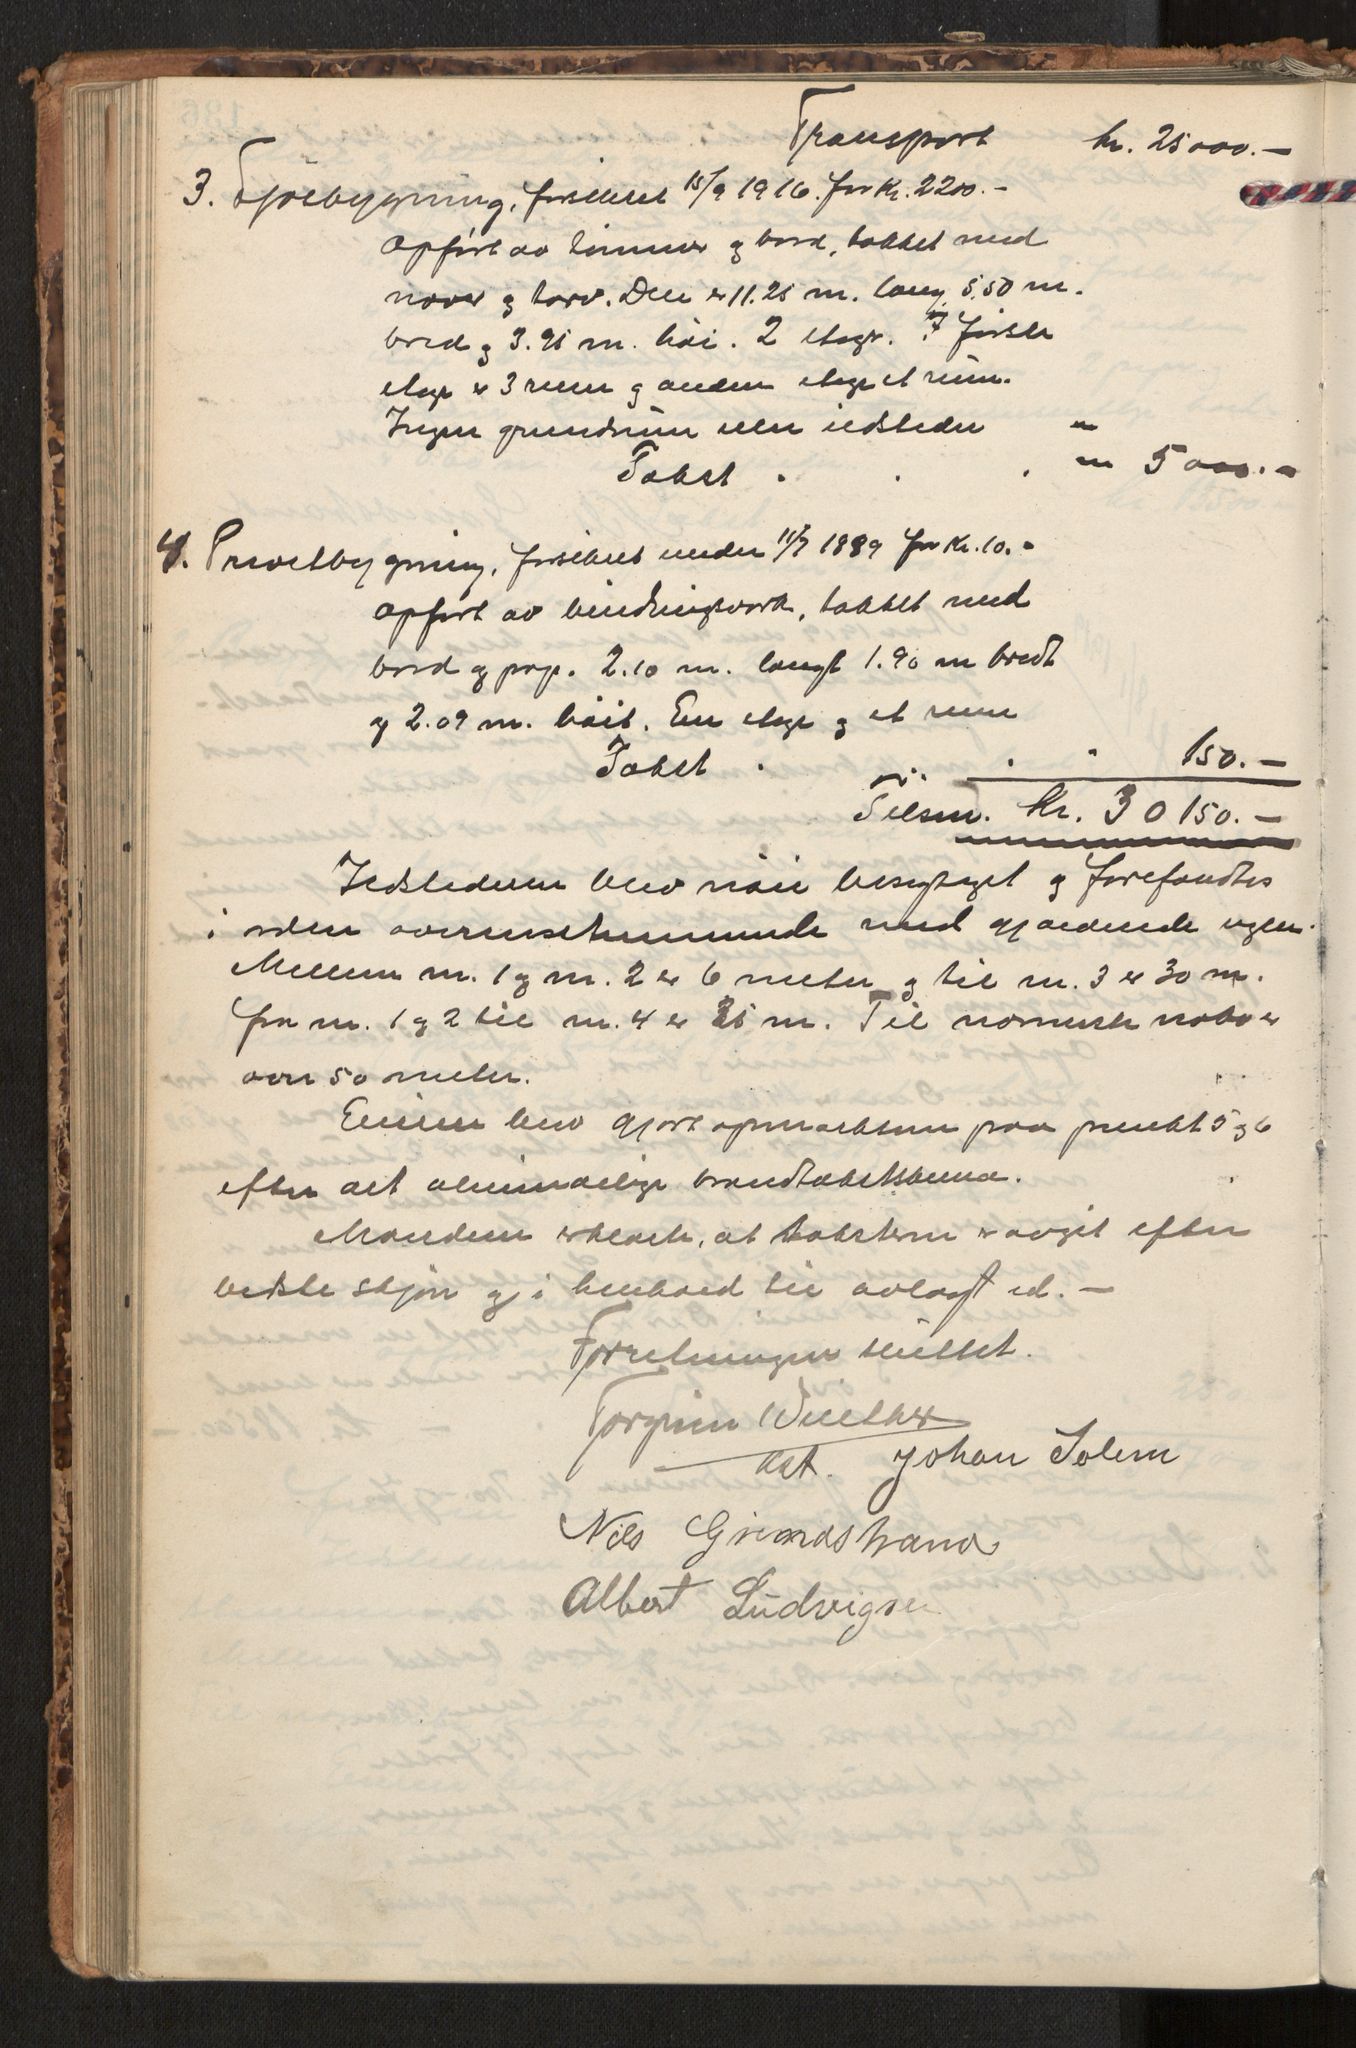 Transport kr. 25000.-
3. Fjøsbygning, forsikret 15/9 1916. for Kr. 2200.-
Opført av tømmer og bord, tækket med
næver og torv. Den er 11.25 m. lang 5.50 m.
bred og 3.95 m. høi. 2 etager. I første
etage er 3 rum og anden etage et rum.
Ingen grundrum eller ildsteder "
Takst . . . " 5000.-
4. Privetbygning, forsikret under 11/7 1889 for Kr. 10.-
Opført av bindingsverk, tækket med
bord og pap. 2.10 m. langt 1.90 m bredt
og 2.09 m. høit. En etage og et rum
Takst . . . 150.-
Tilsm. Kr. 30150.-
Ildstederne blev nøie besigtiget og forefandtes
i orden overensstemmende med gjældende regler.
Mellem nr. 1 og nr. 2 er 6 meter og til nr. 3 er 30 m.
fra nr. 1 og 2 til nr. 4 er m. Til nærmeste nabo er
over 50 meter.
Eieren blev gjort opmerksom paa punkt 5 og 6
efter det almindelige brandtakstskema.
Mændene erklærte, at taksterne er avgit efter
bedste skjøn og i henhold til avlagt ed. -
Forretningen sluttet.
Torginn
Johan Solem
Nils Grundstrand
Albert Ludvigsen